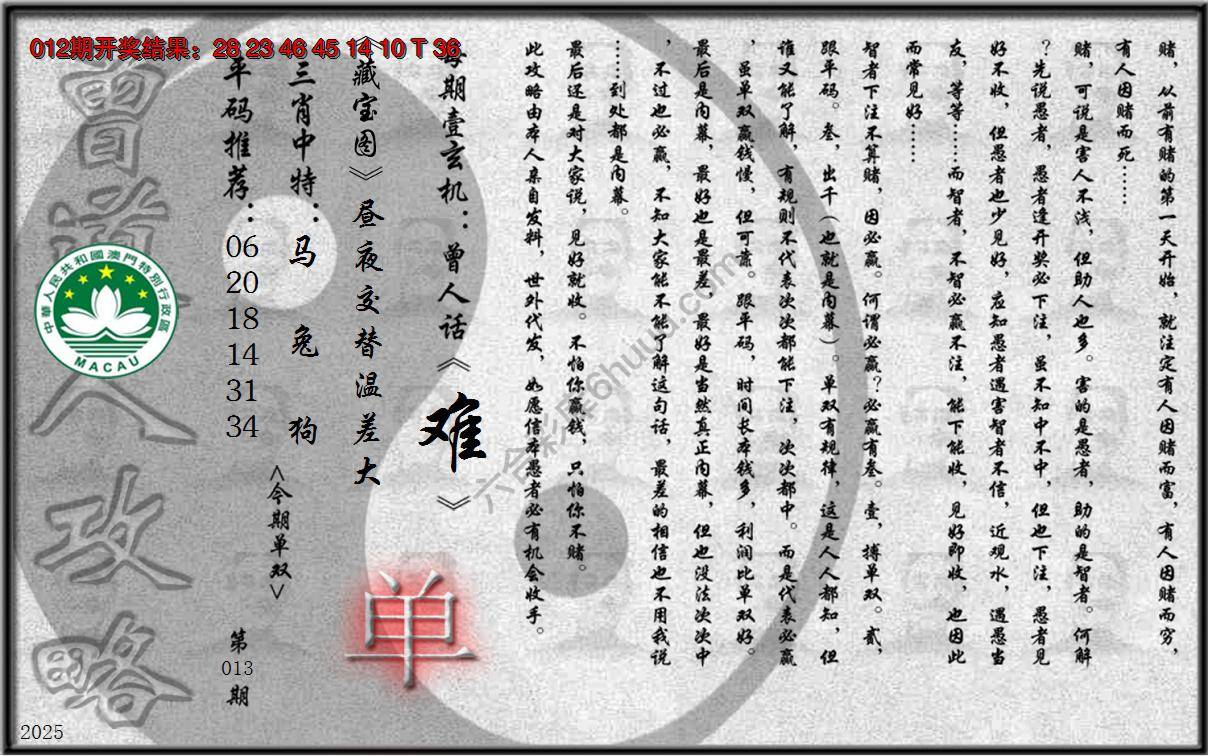 012期开奖结果：28 23 46 45 14 10 T 36
赌，从前有赌的第一天开始，就注定有人因赌而富，有人因赌而穷，
有人因赌而死……
赌，可说是害人不浅，但助人也多。害的是愚者，助的是智者。何解
？先说愚者，愚者逢开奖必下注，虽不知中不中，但也下注，愚者见
好不收，但愚者也少见好，应知愚者遇害智者不信，近观水，遇愚当
友，等等……而智者，不智必赢不注，能下能收，见好即收，也因此
而常见好……
智者下注不算赌，因必赢。何谓必赢？必赢有叁。壹，搏单双。贰，
跟平码。叁，出千（也就是内幕）。单双有规律，这是人人都知，但
谁又能了解，有规则不代表次次都能下注，次次都中。而是代表必赢
，虽单双赢钱慢，但可靠。跟平码，时间长本钱多，利润比单双好。
最后是内幕，最好也是最差，最好是当然真正内幕，但也没法次次中
，不过也必赢，不知大家能不能了解这句话，最差的相信也不用我说
……到处都是内幕。
最后还是对大家说，见好就收。不怕你赢钱，只怕你不赌。
此攻略由本人亲自发料，世外代发，如愿信本愚者必有机会收手。
每期壹玄机：曾人话《难》
《藏宝图》昼夜交替温差大
单
三肖中特：马 兔 狗
<今期单双>
平码推荐：
06
20
18
14
31
34
第
013
期
曾道人攻略
中華人民共和國澳門特別行政區
MACAU
2025